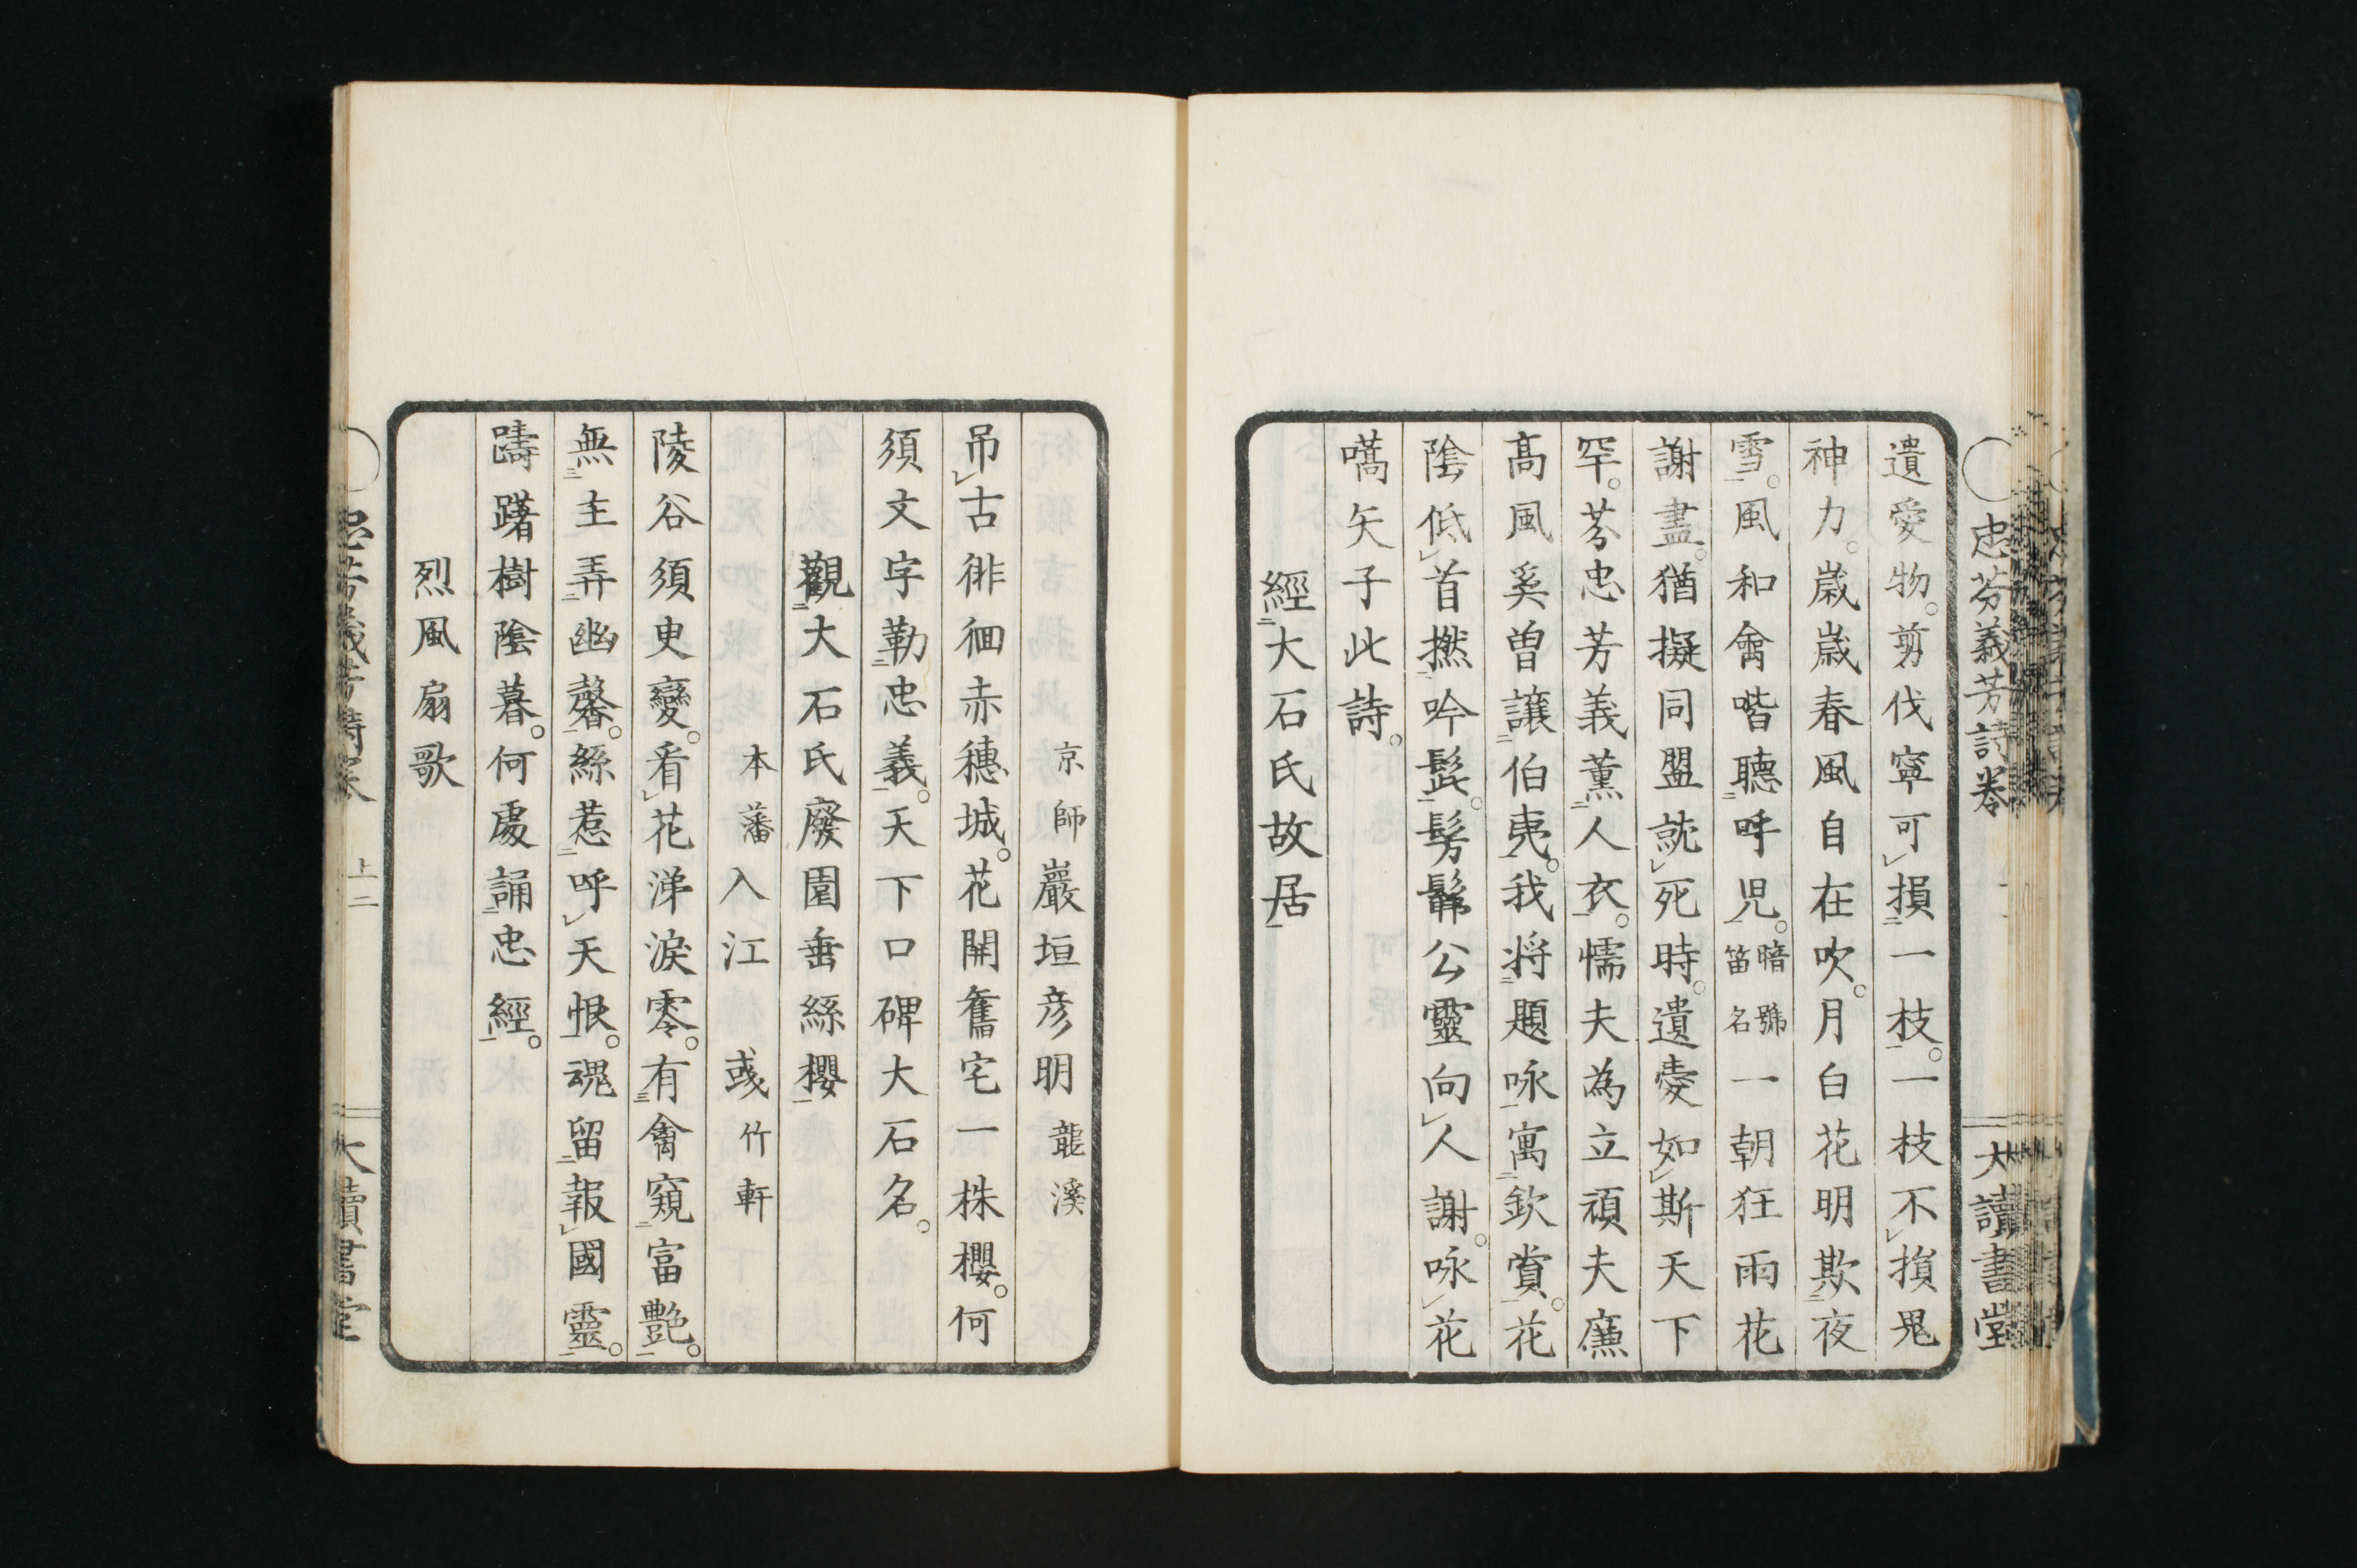 忠芬義芳詩卷
大讀書堂
遺愛物。剪伐寧可損一枝。一枝不損鬼
神力。歲歲春風自在吹。月白花明欺夜
雪。風和禽喈聽呼児。暗號笛名一朝狂雨花
謝盡。猶擬同盟就死時。遺愛如斯天下
罕。芬忠芳義薰人衣。懦夫為立頑夫廉
高風奚曽讓伯夷。我将題咏寓欽賞。花
陰低首撚吟髭。髣髴公靈向人謝。咏花
嚆矢子此詩。
經大石氏故居
京師 巖垣彦明 龍溪
吊古徘徊赤穗城。花開舊宅一株櫻。何
須文字勒忠義。天下口碑大石名。
觀大石氏廢園垂絲櫻
本藩 入江 彧 竹軒
陵谷須臾變。看花涕淚零。有禽窺富艷。
無主弄幽馨。絲惹呼天恨。魂留報國靈。
躊躇樹陰暮。何處誦忠經。
烈風扇歌
上二
大讀書堂